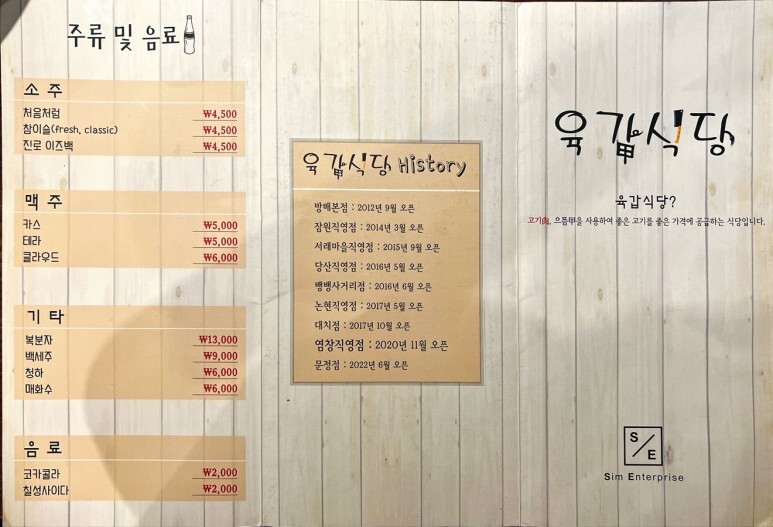 주류 및 음료
소 주
처음처럼 ₩4,500
참이슬(fresh, classic) ₩4,500
진로 이즈백 ₩4,500
맥 주
카스 ₩5,000
테라 ₩5,000
클라우드 ₩6,000
기 타
복분자 ₩13,000
백세주 ₩9,000
청하 ₩6,000
매화수 ₩6,000
음 료
코카콜라 ₩2,000
칠성사이다 ₩2,000
육갑식당 History
방배본점 : 2012년 9월 오픈
잠원직영점 : 2014년 3월 오픈
서래마을직영점 : 2015년 9월 오픈
당산직영점 : 2016년 5월 오픈
뱅뱅사거리점 : 2016년 6월 오픈
논현직영점 : 2017년 5월 오픈
대치점 : 2017년 10월 오픈
염창직영점 : 2020년 11월 오픈
문정점 : 2022년 6월 오픈
육갑식당
甲
육갑식당?
고기肉, 으뜸甲을 사용하여 좋은 고기를 좋은 가격에 공급하는 식당입니다.
S/E
Sim Enterprise